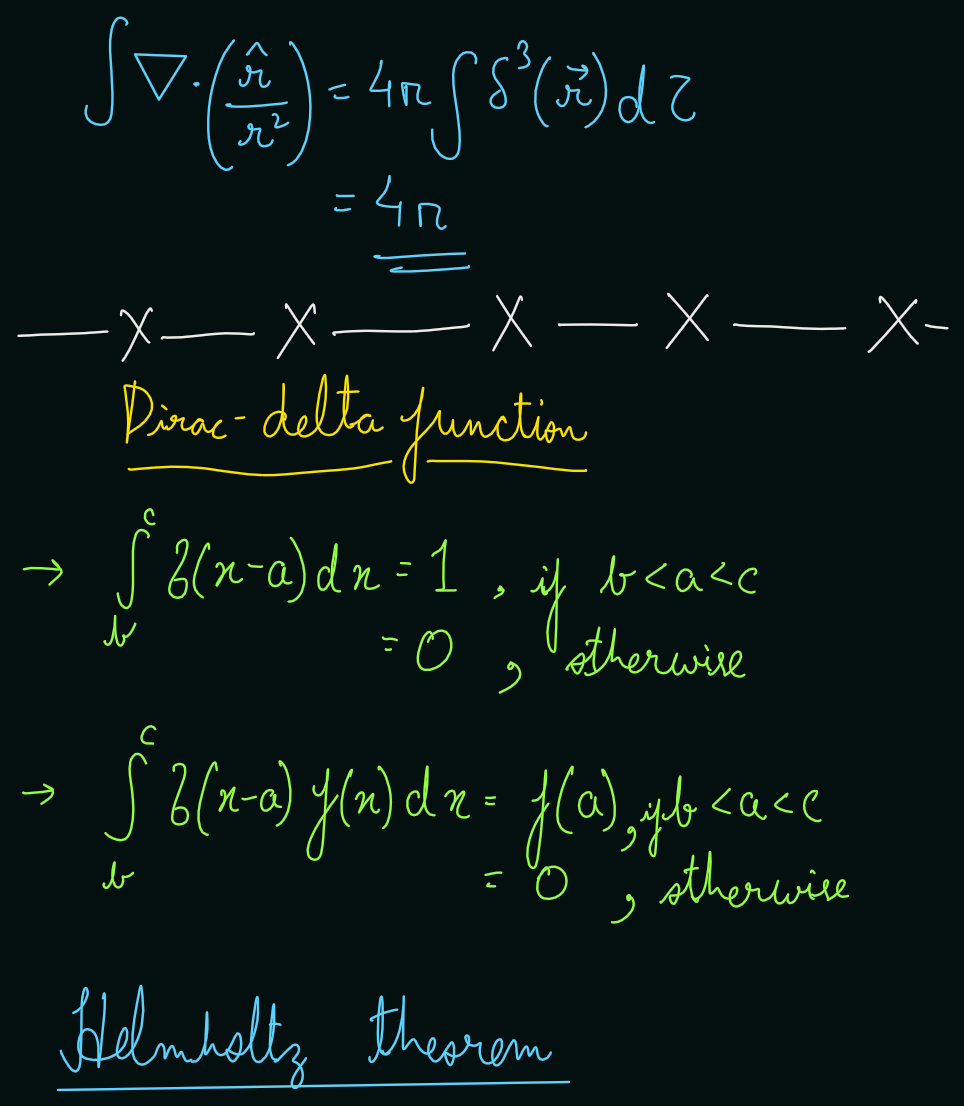 ∫ ∇·(r̂/r²) = 4π ∫ δ³(r⃗) dτ
= 4π
— X — X — X — X — X -
Dirac-delta function
→ ∫_b^c δ(x-a) dx = 1 , if b < a < c
= 0 , otherwise
→ ∫_b^c δ(x-a) f(x) dx = f(a) , if b < a < c
= 0 , otherwise
Helmholtz theorem